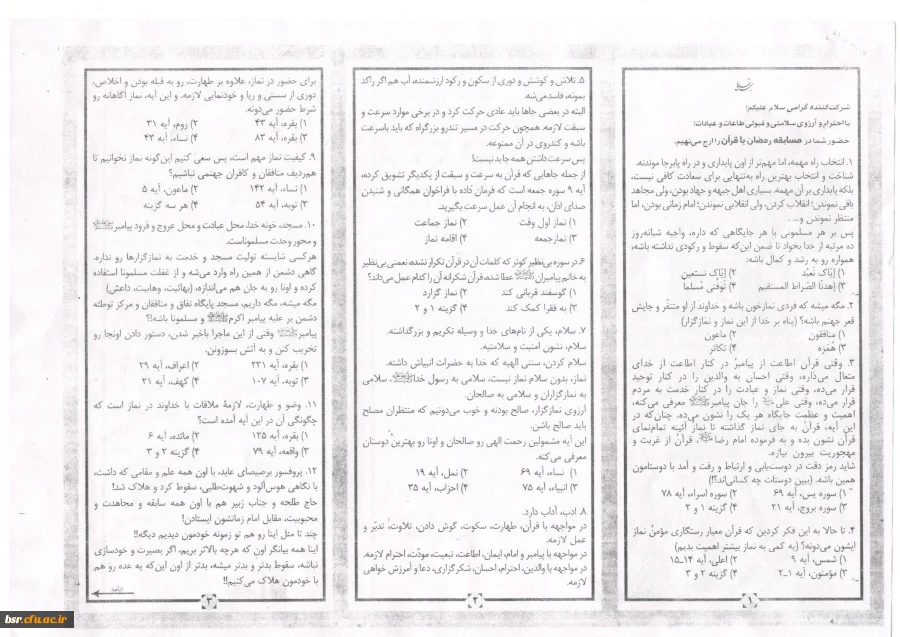 شرکت‌کننده گرامی سلام علیکم؛
با احترام و آرزوی سلامتی و قبولی طاعات و عبادات؛
حضور شما در مسابقه رمضان با قرآن را ارج می‌نهیم.
۱. انتخاب راه مهمه، اما مهم‌تر از اون پایداری و در راه پابرجا موندنه.
شناخت و انتخاب بهترین راه به‌تنهایی برای سعادت کافی نیست،
بلکه پایداری بر آن مهمه. بسیاری اهل جبهه و جهاد بودن، ولی مجاهد
باقی نموندن؛ انقلاب کردن، ولی انقلابی نموندن؛ امام زمانی بودن، اما
منتظر نموندن و...
پس بر هر مسلمونی با هر جایگاهی که داره، واجبه شبانه‌روز
ده مرتبه از خدا بخواد تا ضمن این‌که سقوط و رکودی نداشته باشه،
همواره رو به رشد و کمال باشه:
۱) إیّاک نَعبُد
۲) إیّاک نستعین
۳) إهدنَا الصّراط المستقیم
۴) تَوفّنی مُسلماً
۲. مگه میشه که فردی نمازخون باشه و خداوند از او متنفّر و جایش
قعر جهنم باشه؟ (پناه بر خدا از این نماز و نمازگزار)
۱) منافقون
۲) ماعون
۳) هُمَزه
۴) تکاثر
۳. وقتی قرآن اطاعت از پیامبر در کنار اطاعت از خدای
متعال می‌ذاره، وقتی احسان به والدین را در کنار توحید
قرار می‌ده، وقتی نماز و عبادت را در کنار خدمت به مردم
قرار می‌ده، وقتی علی را جان پیامبر معرفی می‌کنه،
اهمیت و عظمت جایگاه هر یک را نشون می‌ده. چنان‌که در
این آیه، قرآن به جای نماز گذاشته تا نماز آئینه تمام‌نمای
قرآن نشون بده و به فرموده امام رضا، قرآن از غربت و
مهجوریت بیرون بیاره.
شاید رمز دقت در دوست‌یابی و ارتباط و رفت و آمد با دوستامون
همین باشه. (ببین دوستات چه کسانی‌اند؟!)
۱) سوره یس، آیه ۶۹
۲) سوره اسراء، آیه ۷۸
۳) سوره بروج، آیه ۲۱
۴) گزینه ۱ و ۲
۴. تا حالا به این فکر کردین که قرآن معیار رستگاری مؤمنْ نماز
ایشون می‌دونه؟ (یه کمی به نماز بیشتر اهمیت بدیم)
۱) شمس، آیه ۹
۲) اعلی، آیه ۱۴ـ۱۵
۳) مؤمنون، آیه ۱ـ۲
۴) گزینه ۲ و ۳
۱
۵. تلاش و کوشش و دوری از سکون و رکود ارزشمنده، آب هم اگر راکد
بمونه، فاسد می‌شه.
البته در بعضی جاها باید عادی حرکت کرد و در برخی موارد سرعت و
سبقت لازمه. همچون حرکت در مسیر تندرو بزرگراه که باید باسرعت
باشه و کندروی در آن ممنوعه.
پس سرعت داشتن همه جا بد نیست!
از جمله جاهایی که قرآن به سرعت و سبقت از یکدیگر تشویق کرده،
آیه ۹ سوره جمعه است که فرمان داده با فراخوان همگانی و شنیدن
صدای اذان، به انجام آن عمل سرعت بگیرید.
۱) نماز اول وقت
۲) نماز جماعت
۳) نمازجمعه
۴) اقامه نماز
۶. در سوره بی‌نظیر کوثر که کلمات آن در قرآن تکرار نشده، نعمتی بی‌نظیر
به خاتم پیامبران عطا شده، قرآن شکرانه آن را کدام عمل می‌داند؟
۱) گوسفند قربانی کند
۲) نماز گزارد
۳) به فقرا کمک کند
۴) گزینه ۱ و ۲
۷. سلام، یکی از نام‌های خدا و وسیله تکریم و بزرگداشته.
سلام، نشون امنیت و سلامتیه.
سلام کردن، سنتی الهیه که خدا به حضرات انبیاش داشته.
نماز، بدون سلام نماز نیست، سلامی به رسول خدا، سلامی
به نمازگزاران و سلامی به صالحان.
آرزوی نمازگزار، صالح بودنه و خوب می‌دونیم که منتظران مصلح
باید صالح باشن.
این آیه مشمولین رحمت الهی رو صالحان و اونا رو بهترین دوستان
معرفی می‌کنه.
۱) نساء، آیه ۶۹
۲) نمل، آیه ۱۹
۳) انبیاء، آیه ۷۵
۴) احزاب، آیه ۳۵
۸. ادب، آداب دارد.
در مواجهه با قرآن، طهارت، سکوت، گوش دادن، تلاوت، تدبّر و
عمل لازمه.
در مواجهه با پیامبر و امام، ایمان، اطاعت، تبعیت، مودّت، احترام لازمه.
در مواجهه با والدین، احترام، احسان، شکرگزاری، دعا و آمرزش خواهی
لازمه.
۲
برای حضور در نماز، علاوه بر طهارت، رو به قبله بودن و اخلاص،
دوری از سستی و ریا و خودنمایی لازمه. و این آیه، نماز آگاهانه رو
شرط حضور می‌دونه.
۱) بقره، آیه ۴۳
۲) روم، آیه ۳۱
۳) بقره، آیه ۸۳
۴) نساء، آیه ۴۳
۹. کیفیت نماز مهم است، پس سعی کنیم این‌گونه نماز نخوانیم تا
هم‌ردیف منافقان و کافران جهنمی نباشیم؟
۱) نساء، آیه ۱۴۲
۲) ماعون، آیه ۵
۳) توبه، آیه ۵۴
۴) هر سه گزینه
۱۰. مسجد، خونه خدا، محل عبادت و محل عروج و فرود پیامبر
و محور وحدت مسلموناست.
هرکسی شایسته تولیت مسجد و خدمت به نمازگزارها رو نداره.
گاهی دشمن از همین راه وارد می‌شه و از غفلت مسلمونا استفاده
کرده و اونا رو به جان هم می‌اندازه. (بهائیت، وهابیت، داعش)
مگه میشه، مگه داریم، مسجد پایگاه نفاق و منافقان و مرکز توطئه
دشمن بر علیه پیامبر اکرم و مسلمونا باشه!؟
پیامبر وقتی از این ماجرا باخبر شدن، دستور دادن اونجا رو
تخریب کنن و به آتش بسوزونن.
۱) بقره، آیه ۲۳۱
۲) اعراف، آیه ۲۹
۳) توبه، آیه ۱۰۷
۴) کهف، آیه ۲۱
۱۱. وضو و طهارت، لازمهٔ ملاقات با خداوند در نماز است که
چگونگی آن در این آیه آمده است؟
۱) بقره، آیه ۱۲۵
۲) مائده، آیه ۶
۳) واقعه، آیه ۷۹
۴) گزینه ۲ و ۳
۱۲. پروفسور برصیصای عابد، با اون همه علم و مقامی که داشت،
با نگاهی هوس‌آلود و شهوت‌طلبی، سقوط کرد و هلاک شد!
حاج طلحه و جناب زبیر هم با اون همه سابقه و مجاهدت و
محبوبیت، مقابل امام زمانشون ایستادن!
چند تا مثل اینا رو هم تو زمونه خودمون دیدیم دیگه!!
اینا همه بیانگر اون که هرچه بالاتر بریم، اگر بصیرت و خودسازی
نباشه، سقوط بدتر و بدتر میشه، بدتر از اون این‌که یه عده رو هم
با خودمون هلاک می‌کنیم!!
ادامه
۳
bsr.cfu.ac.ir